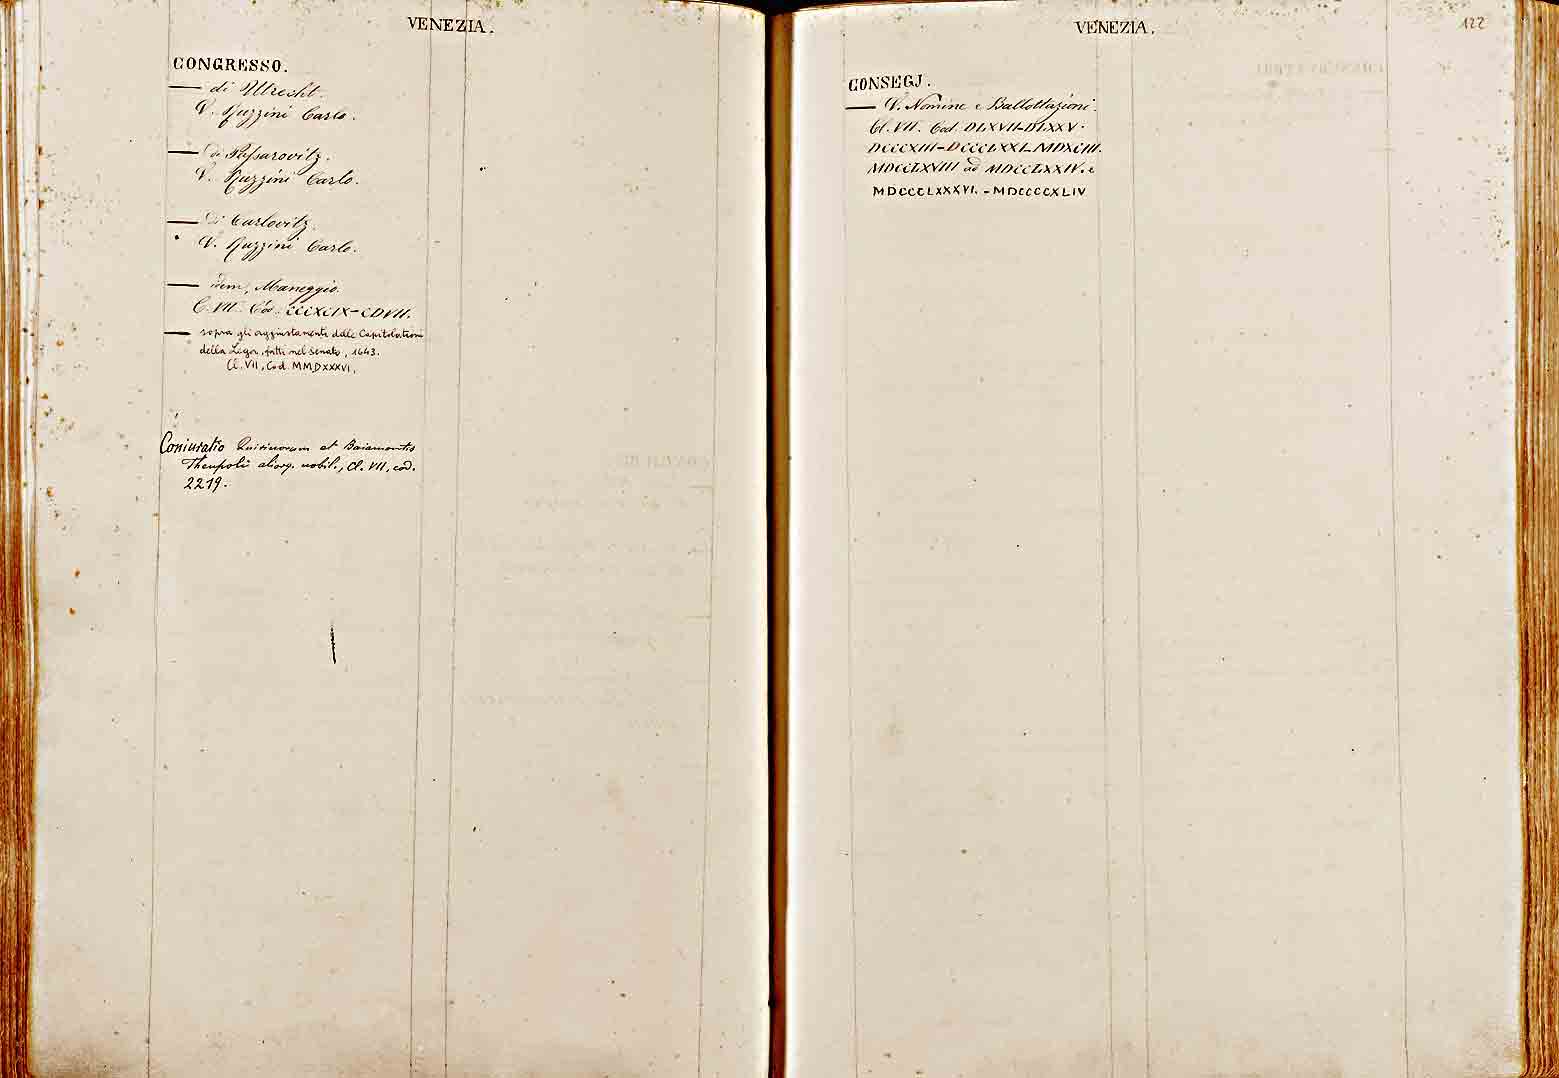 VENEZIA.
CONGRESSO.
— di Utrecht.
V. Ruzzini Carlo.
— di Passarovitz.
V. Ruzzini Carlo.
— di Carlovitz.
V. Ruzzini Carlo.
— idem, Maneggio.
C. VII. Cod. CCCXCIX-CDVII.
— sopra gli aggiustamenti delle Capitolationi
della Lega, fatti nel Senato, 1643.
Cl. VII, Cod. MMDXXXVI.
Coniuratio Quirinorum et Baiamontis
Theupoli aliorq. nobil., Cl. VII, cod.
2219.
VENEZIA.
122
CONSEGJ.
— V. Nomine e Ballottazioni.
Cl. VII. Cod. DLXVII-DLXXV.
DCCCXIII-DCCCCLXXI-MDXCIII.
MDCCLXVIII ad MDCCLXXIV. e
MDCCCLXXXVI. - MDCCCCXLIV